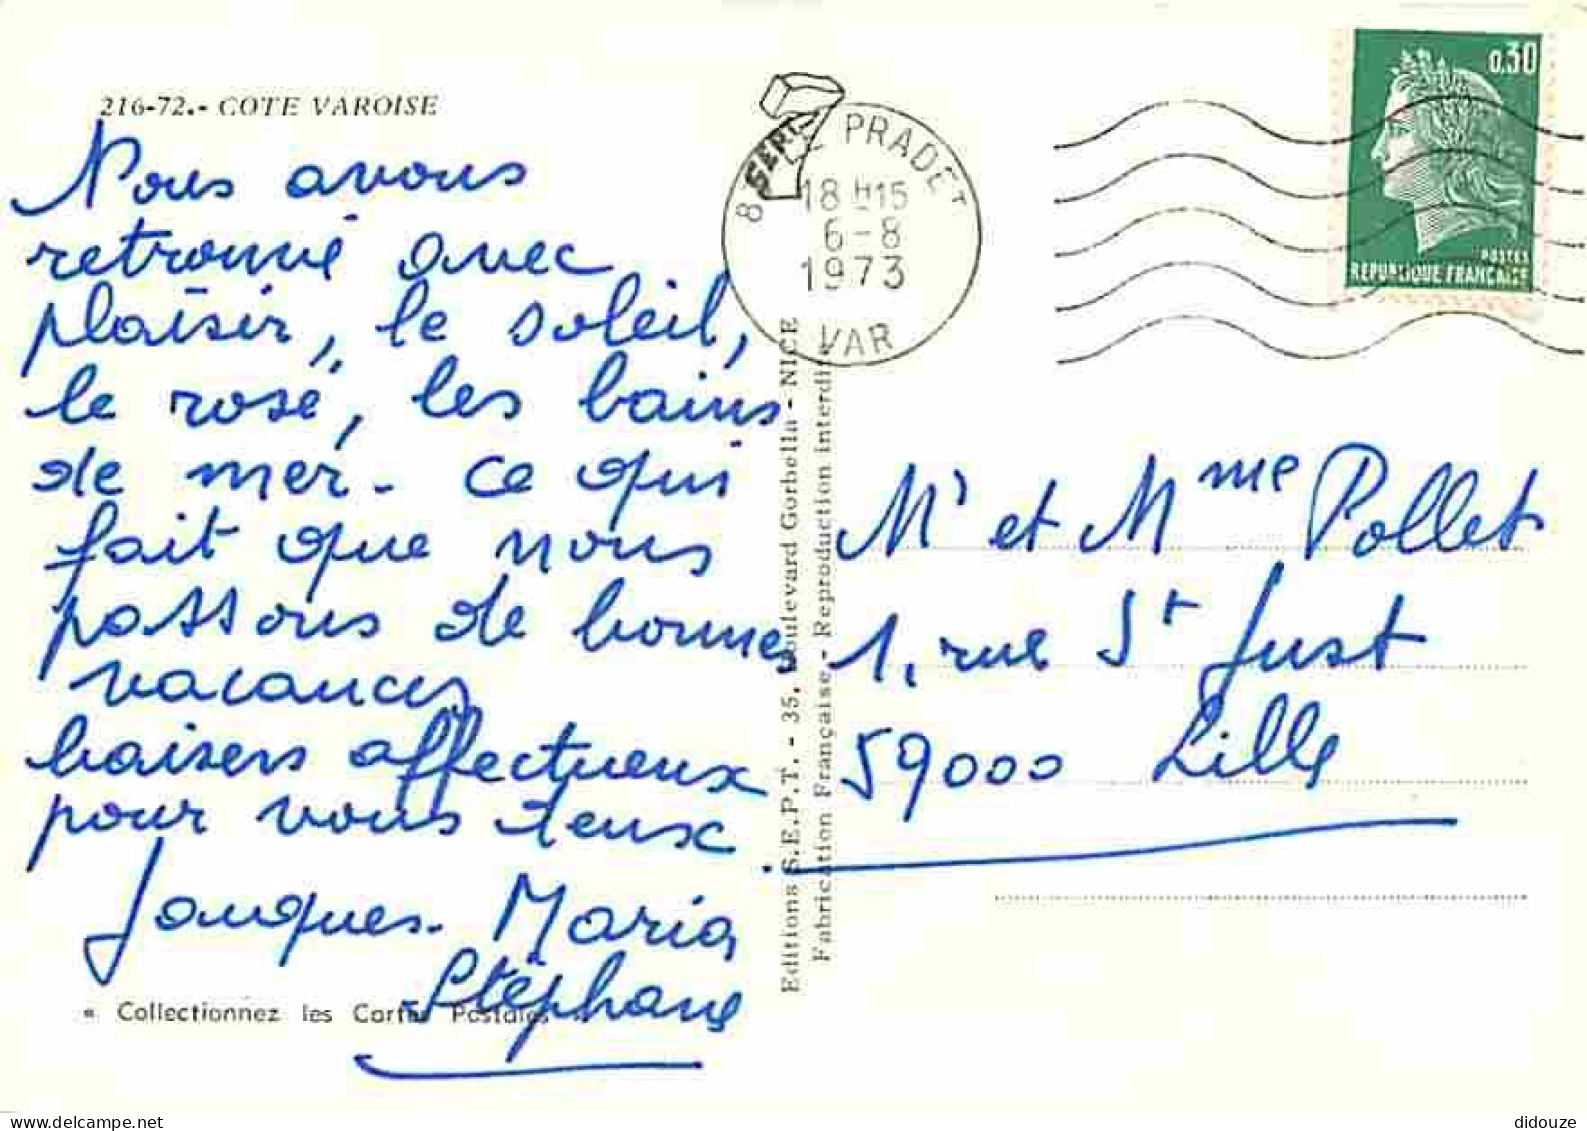 216-72.- COTE VAROISE
Nous avons
retrouvé avec
plaisir, le soleil,
le rosé, les bains
de mer. Ce qui
fait que nous
passons de bonnes
vacances
baisers affectueux
pour vous deux
Jacques. Maria
Stéphane
« Collectionnez les Cartes Postales »
Editions S.E.P.T. - 35, Boulevard Gorbella - NICE
Fabrication Française. - Reproduction interdite
LE PRADET
18 H15
6-8
1973
VAR
0,30
POSTES
REPUBLIQUE FRANCAISE
Mr et Mme Pollet
1, rue St Just
59000 Lille
delcampe.net
didouze